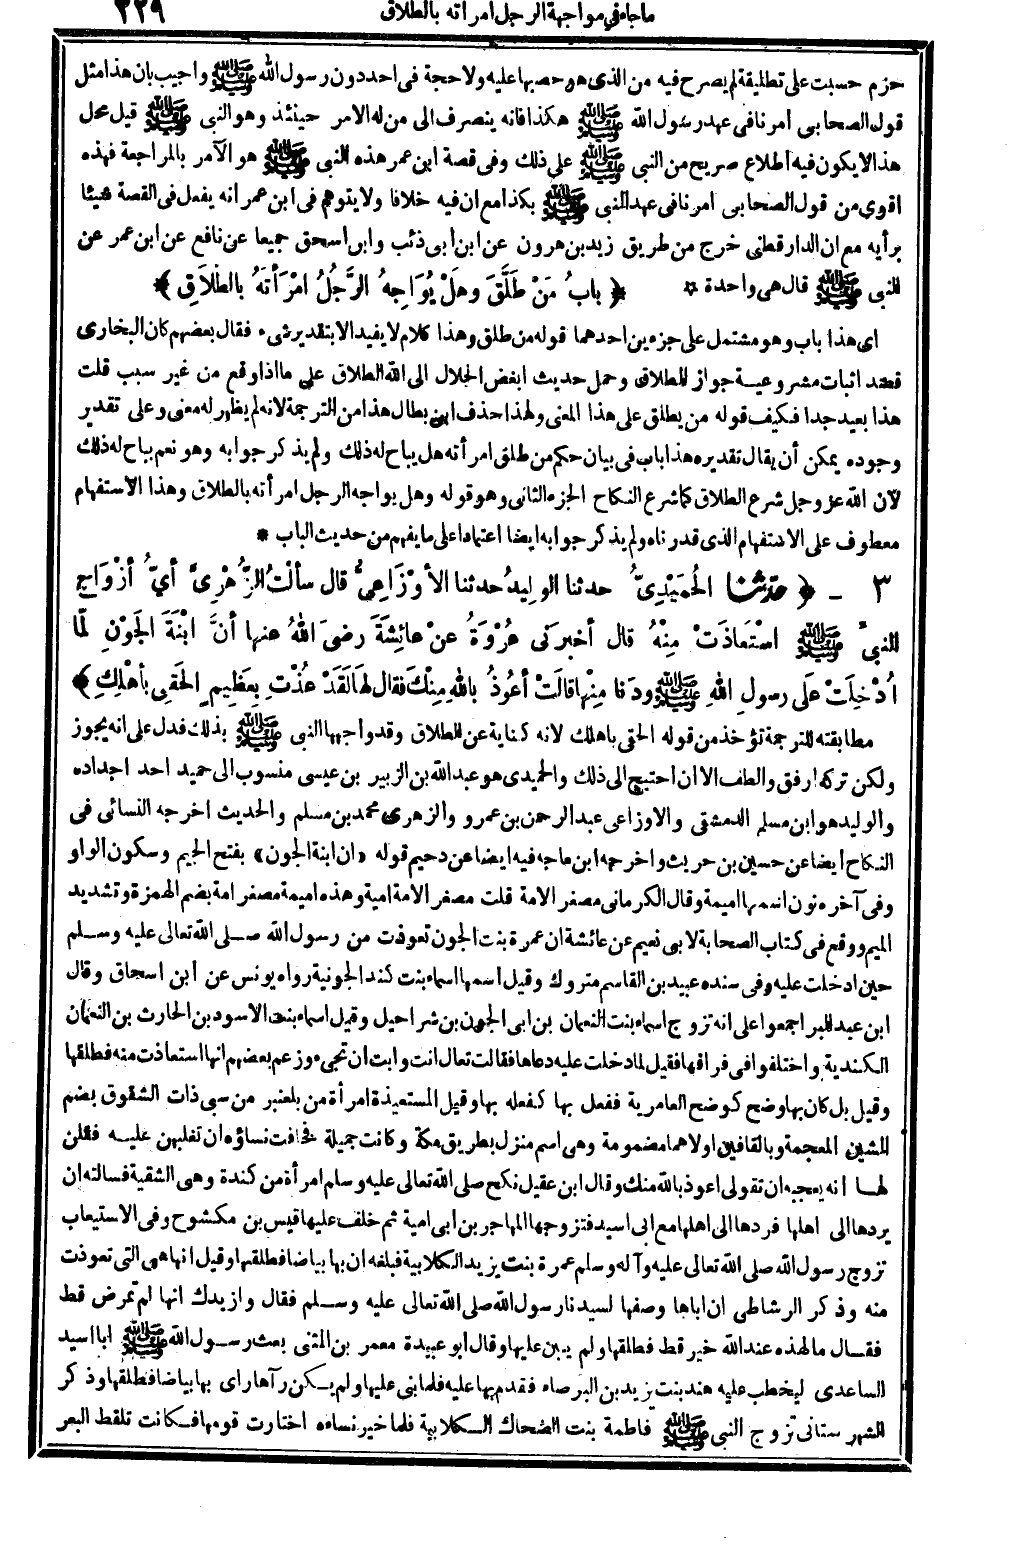 ماجاء في مواجهة الرجل امرأته بالطلاق ٢٢٩
حزم حسبت على تطليقة لم يصرح فيه من الذى هو حصبها عليه ولا حجة فى احد دون رسول الله ﷺ واجيب بان هذا مثل
قول الصحابى امرنا فى عهد رسول الله ﷺ هكذا فانه ينصرف الى من له الامر حينئذ وهو النبى ﷺ قيل محل
هذا لا يكون فيه اطلاع صريح من النبى ﷺ على ذلك وفى قصة ابن عمر هذه النبى ﷺ هو الآمر بالمراجعة فهذه
اقوى من قول الصحابى امرنا فى عهد النبى ﷺ بكذا مع ان فيه خلافا ولا يتوهم فى ابن عمر انه يفعل فى القصة شيئا
برأيه مع ان الدارقطنى خرج من طريق زيد بن هرون عن ابن ابى ذئب وابن اسحق جميعا عن نافع عن ابن عمر عن
النبى ﷺ قال هى واحدة * ﴿ بابُ مَنْ طَلَّقَ وهَلْ يُوَاجِهُ الرَّجُلُ امْرَأتَهُ بالطَّلاَقِ ﴾
اى هذا باب وهو مشتمل على جزءين احدهما قوله من طلق وهذا كلام لا يفيد الا بتقدير شىء فقال بعضهم كان البخارى
قصد اثبات مشروعية جواز الطلاق وحمل حديث ابغض الحلال الى الله الطلاق على ما اذا وقع من غير سبب قلت
هذا بعيد جدا فكيف قوله من يطلق على هذا المعنى ولهذا حذف ابن بطال هذا من الترجمة لانه لم يظهر له معنى وعلى تقدير
وجوده يمكن أن يقال تقديره هذا باب فى بيان حكم من طلق امرأته هل يباح له ذلك ولم يذكر جوابه وهو نعم يباح له ذلك
لآن الله عز وجل شرع الطلاق كما شرع النكاح الجزء الثانى وهو قوله وهل يواجه الرجل امرأته بالطلاق وهذا الاستفهام
معطوف على الاستفهام الذى قدرناه ولم يذكر جوابه ايضا اعتمادا على ما يفهم من حديث الباب *
٣ - ﴿ حدثنا الحُمَيْدِىُّ حدثنا الوليدُ حدثنا الأوْزَاعِىُّ قال سألْتُ الزُّهْرِىَّ أىُّ أزْوَاجِ
النبىِّ ﷺ اسْتَعَاذَتْ مِنْهُ قال أخبرَنى عُرْوَةُ عنْ عائِشَةَ رضىَ اللهُ عنها أنَّ ابْنَةَ الجَوْنِ لَمَّا
اُدْخِلَتْ عَلَى رسولِ اللهِ ﷺ ودَنا مِنْها قالَتْ أعُوذُ باللهِ مِنْكَ فقال لهَا لَقَدْ عُذْتِ بِعَظِيمٍ الحَقِى بأهْلِكِ ﴾
مطابقته للترجمة تؤخذ من قوله الحقى باهلك لانه كناية عن الطلاق وقد واجهها النبى ﷺ بذلك فدل على انه يجوز
ولكن تركه ارفق والطف الا ان احتيج الى ذلك والحميدى هو عبد الله بن الزبير بن عيسى منسوب الى حميد احد اجداده
والوليد هو ابن مسلم الدمشقى والاوزاعى عبد الرحمن بن عمرو والزهرى محمد بن مسلم والحديث اخرجه النسائى فى
النكاح ايضا عن حسين بن حريث واخرجه ابن ماجه فيه ايضا عن دحيم قوله «ان ابنة الجون» بفتح الجيم وسكون الواو
وفى آخره نون اسمها اميمة وقال الكرمانى مصغر الامة قلت مصغر الامة امية وهذه اميمة مصغر امة بضم الهمزة وتشديد
الميم ووقع فى كتاب الصحابة لابى نعيم عن عائشة ان عمرة بنت الجون تعوذت من رسول الله صلى الله تعالى عليه وسلم
حين ادخلت عليه وفى سنده عبيد بن القاسم متروك وقيل اسمها اسماء بنت كند الجونية رواه يونس عن ابن اسحاق وقال
ابن عبد البر اجمعوا على انه تزوج اسماء بنت النعمان بن ابى الجون بن شراحيل وقيل اسماء بنت الاسود بن الحارث بن النعمان
الكندية واختلفوا فى فراقها فقيل لما دخلت عليه دعاها فقالت تعال انت وابت ان تجىء وزعم بعضهم انها استعاذت منه فطلقها
وقيل بل كان بها وضح كوضح العامرية ففعل بها كفعله بها وقيل المستعيذة امرأة من بلعنبر من سبى ذات الشقوق بضم
الشين المعجمة وبالقافين اولاهما مضمومة وهى اسم منزل بطريق مكة وكانت جميلة فخافت نساؤه ان تغلبهن عليه فقلن
لهـا انه يعجبه ان تقولى اعوذ بالله منك وقال ابن عقيل نكح صلى الله تعالى عليه وسلم امرأة من كندة وهى الشقية فسالته ان
يردها الى اهلها فردها الى اهلها مع ابى اسيد فتزوجها المهاجر بن ابى امية ثم خلف عليها قيس بن مكشوح وفى الاستيعاب
تزوج رسول الله صلى الله تعالى عليه وآله وسلم عمرة بنت يزيد الكلابية فبلغه ان بها بياضا فطلقها وقيل انها هى التى تعوذت
منه وذكر الرشاطى ان اباها وصفها لسيدنا رسول الله صلى الله تعالى عليه وسلم فقال وازيدك انها لم تمرض قط
فقـال ما لهذه عند الله خير قط فطلقها ولم يبن عليها وقال ابو عبيدة معمر بن المثنى بعث رسول الله ﷺ ابا اسيد
الساعدى ليخطب عليه هند بنت يزيد بن البرصاء فقدم بها عليه فلما بنى عليها ولم يكن رآها راى بها بياضا فطلقها وذكر
الشهرستانى تزوج النبى ﷺ فاطمة بنت الضحاك الكلابية فلما خير نساءه اختارت قومها فكانت تلقط البعر